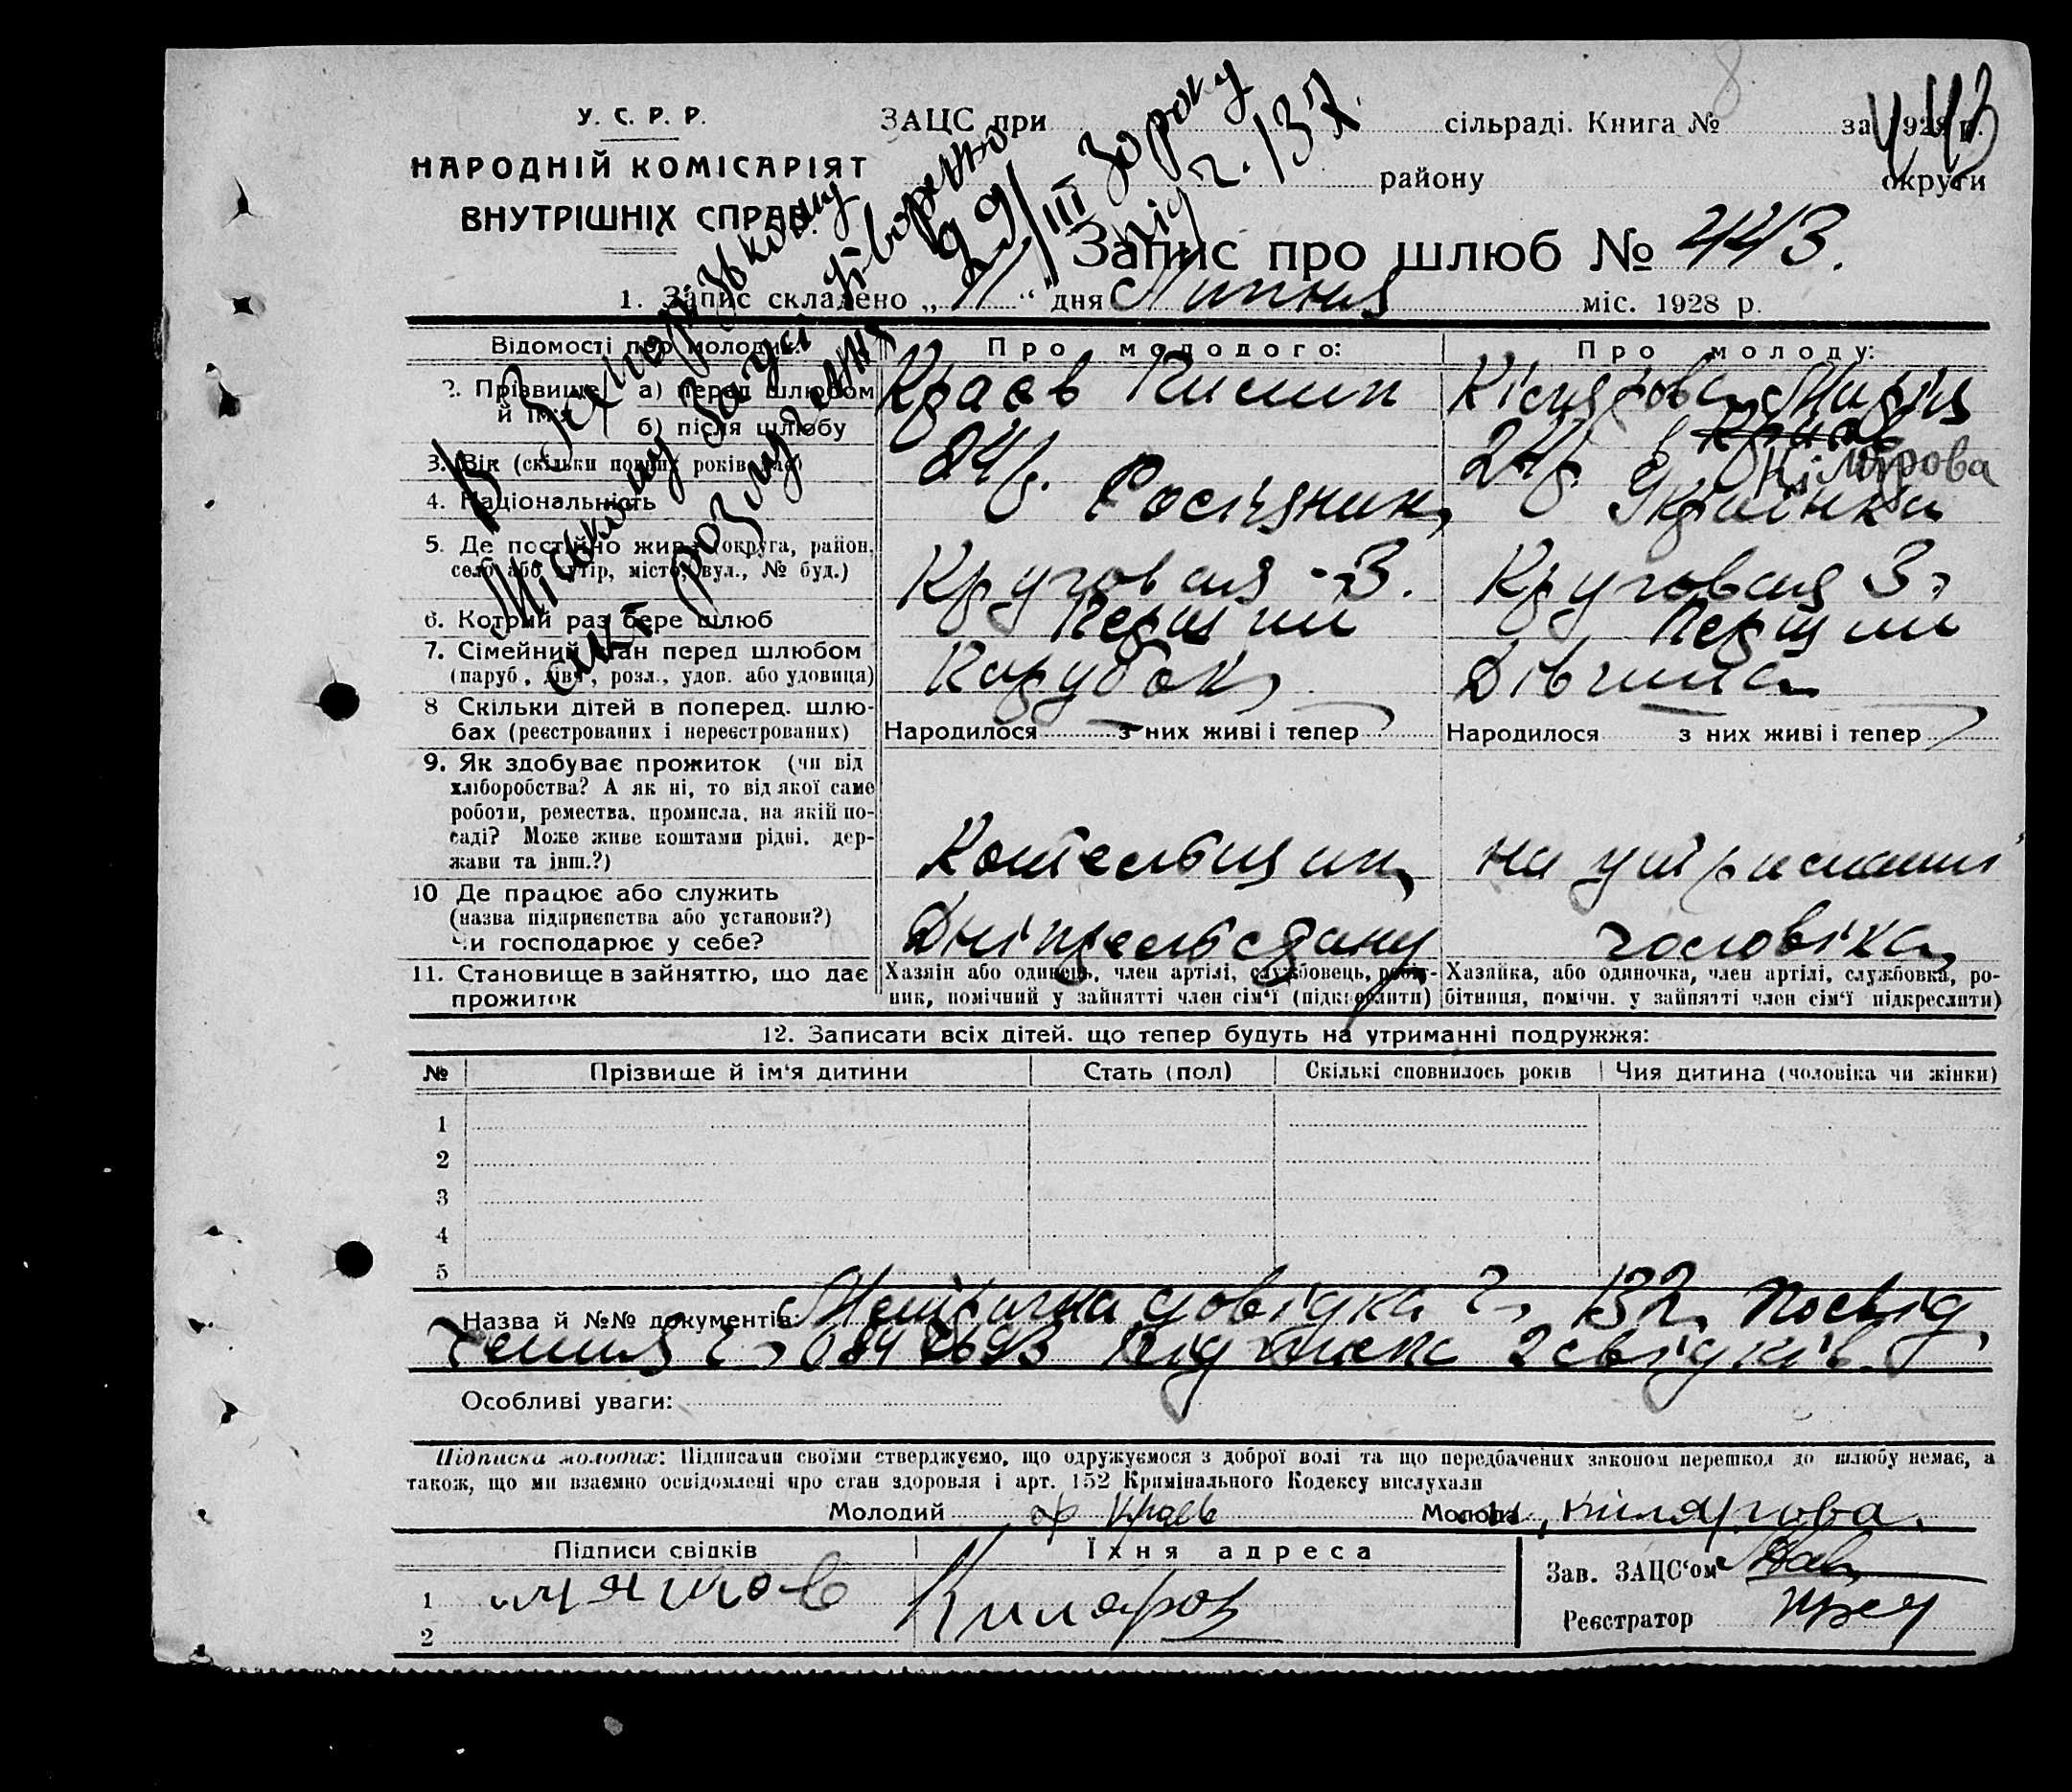 443
8
У. С. Р. Р.
НАРОДНІЙ КОМІСАРІЯТ
ВНУТРІШНІХ СПРАВ.
ЗАЦС при сільраді. Книга № за 1928 р.
району округи
В Запорізькому
Міському Загсі утворено
акт розлучення
29/III 30 року
під ч. 137.
Запис про шлюб № 443.
1. Запис складено „11“ дня Липня міс. 1928 р.
Відомості про молодих: Про молодого: Про молоду:
2. Прізвище й ім'я а) перед шлюбом Краєв Кілярова Марія
б) після шлюбу Кілярова
3. Вік (скільки повних років має) 24 р. 24 р.
4. Національність Росіянин, Українка
5. Де постійно живе (округа, район,
село або хутір, місто, вул., № буд.) Круговая - 3. Круговая 3,
6. Котрий раз бере шлюб Перший Перший
7. Сімейний стан перед шлюбом
(паруб., дівч., розл., удов. або удовиця) Парубок, Дівчина
8 Скільки дітей в поперед. шлю-
бах (реєстрованих і нереєстрованих) Народилося з них живі і тепер Народилося з них живі і тепер
9. Як здобуває прожиток (чи від
хліборобства? А як ні, то від якої саме
роботи, ремества, промисла, на якій по-
саді? Може живе коштами рідні, дер-
жави та інш.?) Котельщик, на утриманні
10 Де працює або служить
(назва підприємства або установи?)
Чи господарює у себе? Дніпрельстану чоловіка,
11. Становище в зайняттю, що дає
прожиток
Хазяїн або одинець, член артілі, службовець, робіт-
ник, помічний у зайнятті член сім'ї (підкреслити)
Хазяйка, або одиночка, член артілі, службовка, ро-
бітниця, помічн. у зайнятті член сім'ї підкреслити)
12. Записати всіх дітей. що тепер будуть на утриманні подружжя:
№ Прізвище й ім'я дитини Стать (пол) Скількі сповнилось років Чия дитина (чоловіка чи жінки)
1
2
3
4
5
Назва й №№ документів: Метрична довідка ч, 132, Посвід
чення ч, Підписка 2 свідків.
Особливі уваги:
Підписка молодих: Підписами своїми стверджуємо, що одружуємося з доброї волі та що передбачених законом перешкод до шлюбу немає, а
також, що ми взаємно освідомлені про стан здоровля і арт. 152 Кримінального Кодексу вислухали
Молодий Краев Молода Килярова.
Підписи свідків Їхня адреса
Зав. ЗАЦС'ом
1 Киляров
Реєстратор
2